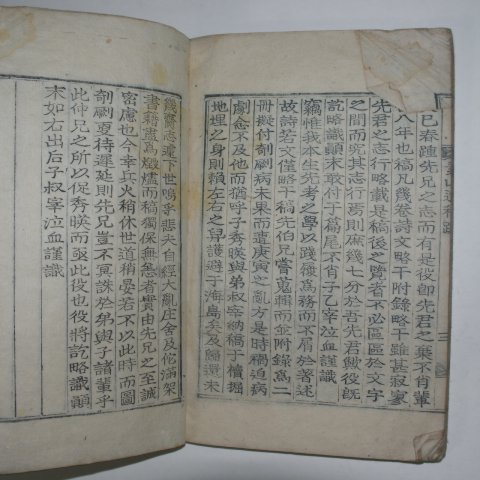 巳春踵先兄之志而有是役卽先君之棄不肖輩
八年也稿凡幾卷詩文略干附錄略干雖甚寂寥
先君之志行略載是稿後之覽者不必區區於文字
之間而究其志行焉則庶幾七分於吾先君歟役旣
訖略識顚末敢付于篇尾不肖子乙宰泣血謹識
竊惟我本生先考之學以踐履爲務而不屑於著述
故詩若文僅略干稿先伯兄嘗蒐輯而並附錄爲二
冊擬付剞劂病未果而遭庚寅之亂方是時稠迫病
劇念不及他而猶呼子秀暎與弟叔宰納稿于櫝掘
地埋之身則賴左右之舁護避于海島矣及歸選未
幾齋志遽下世嗚乎悲夫自經大亂庄舍及佗滿架
書籍盡爲燬燼而稿獨保無恙者實由先兄之至誠
密慮也今幸兵火稍休世道稍晏若不以此時而圖
剞劂更待遲延則先兄豈不冥誅於弟與子諸輩乎
此仲兄之所以促秀暎而亟此役也役將訖略識顚
末如右出后子叔宰泣血謹識